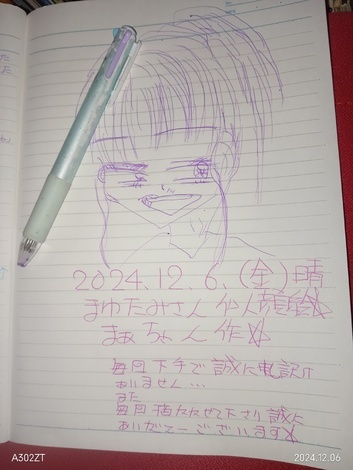 2024.12.6.(金)晴
まゆたみさん似顔絵☆
まぁちゃん作☆
毎回下手で誠に申し訳
ありません…
また
毎回描かせて下さり誠に
ありがとーございます☆
A302ZT
2024.12.06